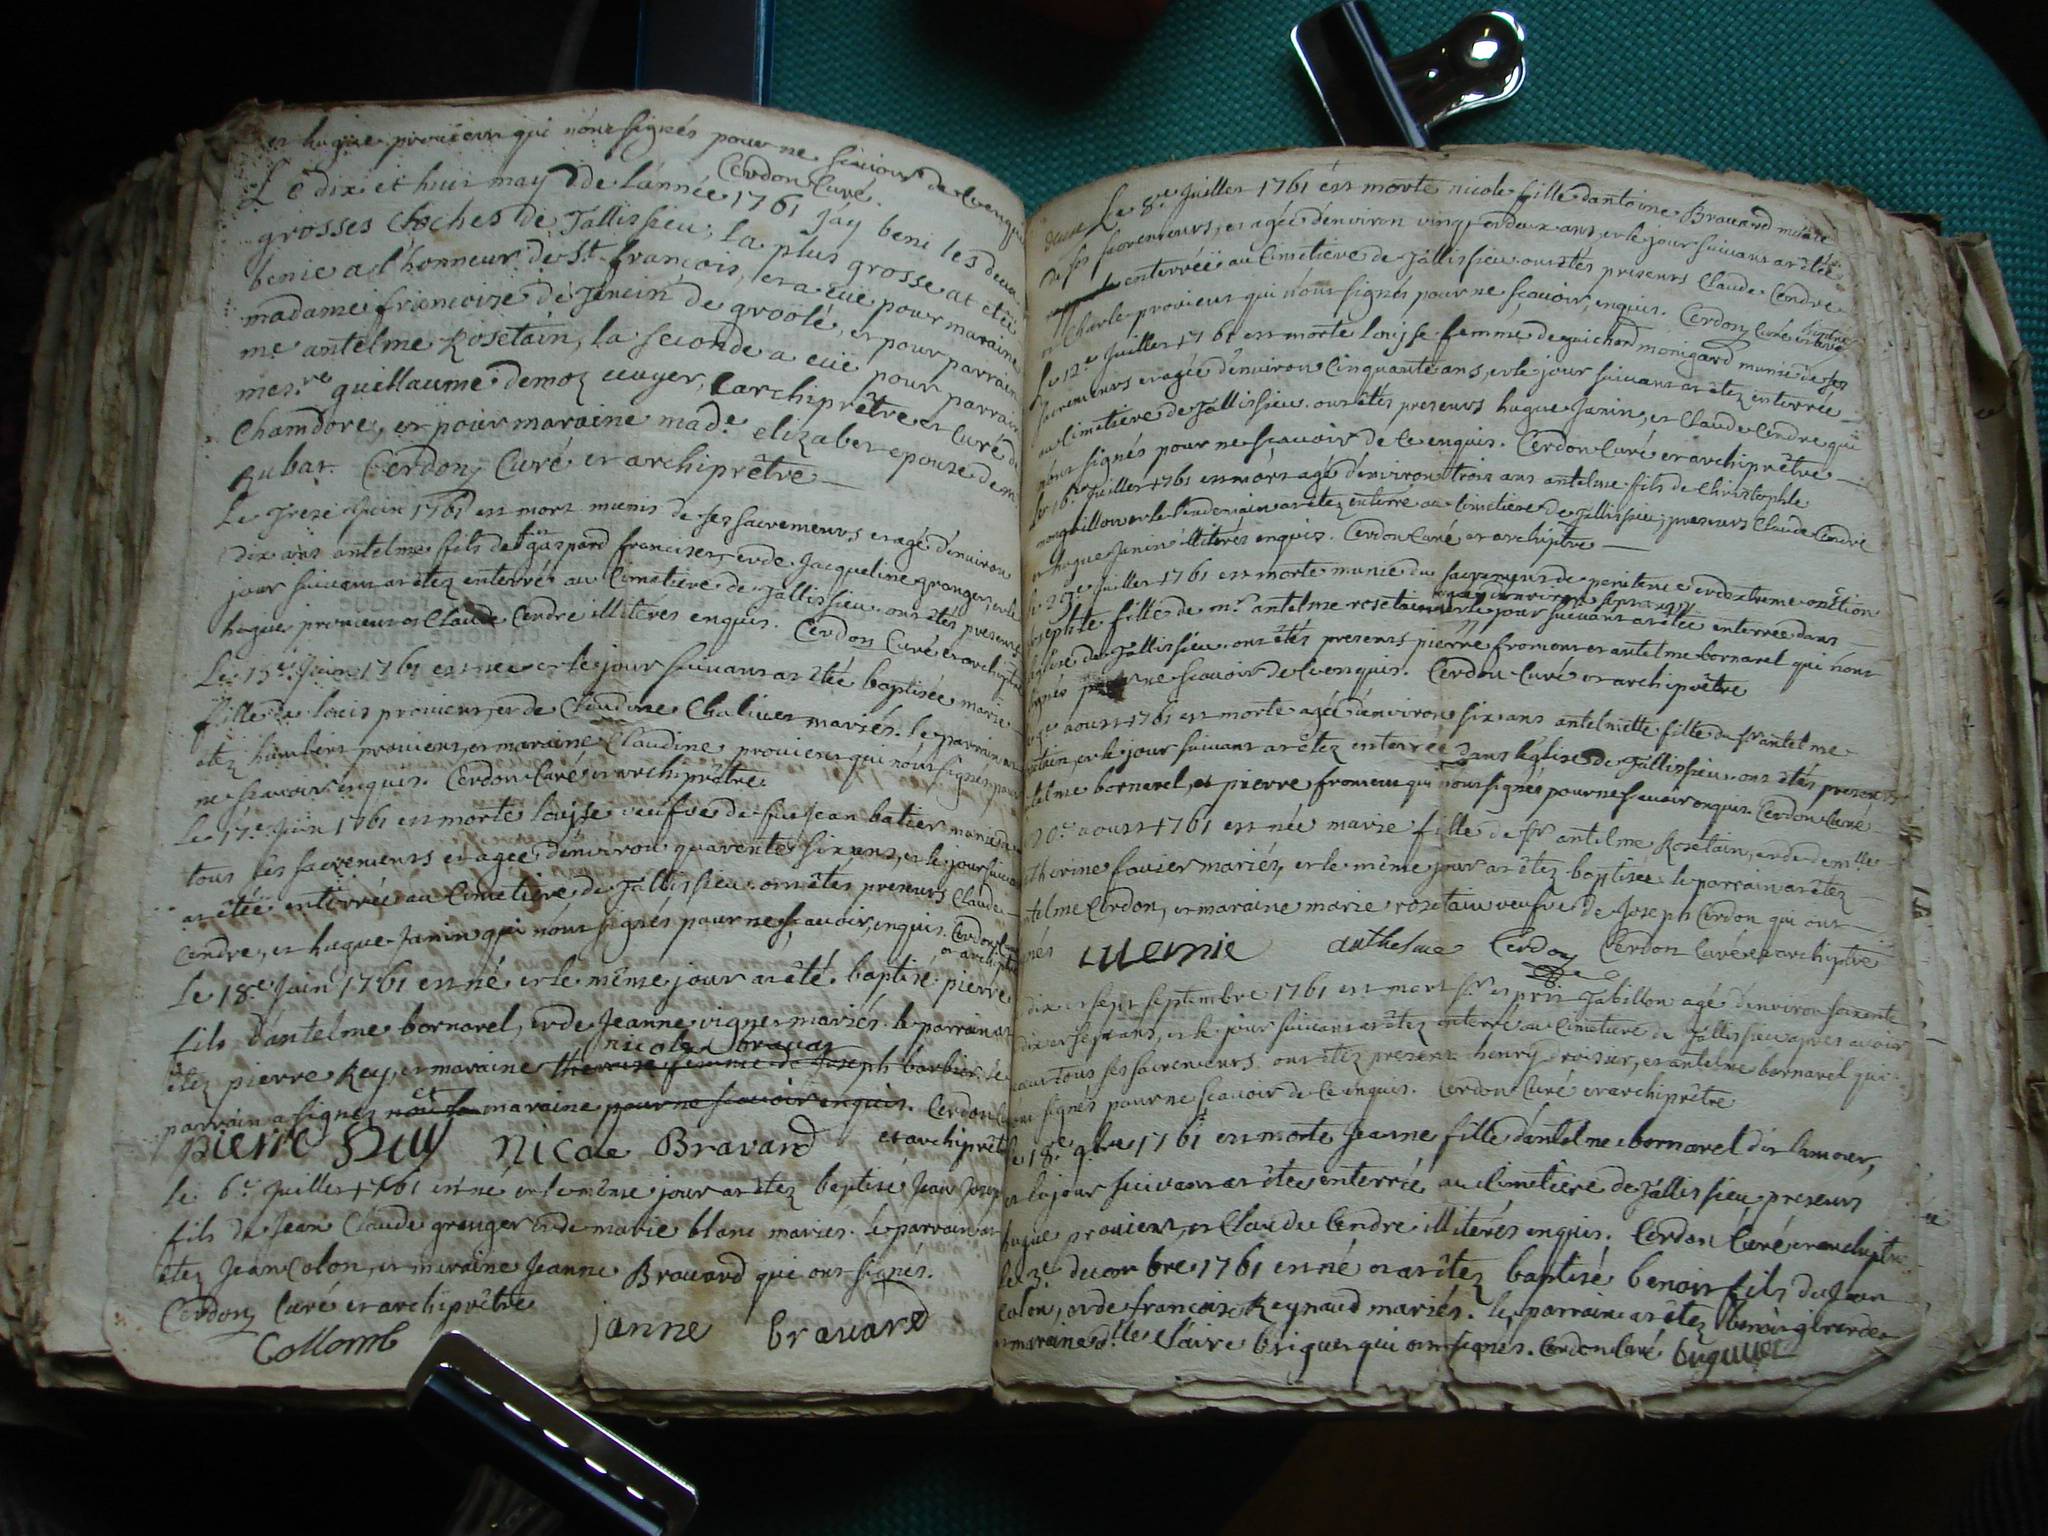 et hugue provieur qui n'ont signés pour ne scavoir de ce enquis
Cerdon Curé.
Le dix et huit may de l'année 1761 j'ay beni les deux
grosses Cloches de Tallissieu, la plus grosse at eté
benie a l'honneur de St. francois, et a eüe pour maraine
madame francoise de Jencin de groolé, et pour parrain
mr. antelme Rosetain, la seconde a eüe pour parrain
mes.re guillaume demoz ecuyer, archiprêtre et Curé de
Chamdore, et pour maraine mad.e elizabet epouse de m.
Rubat. Cerdon Curé et archiprêtre
Le Treze Juin 1761 est mort munis de ses sacrements et agé d'environ
dix ans antelme fils de gaspard franciset, et de Jacqueline granger, et le
jour suivant at étez enterré au Cimetiere de Tallissieu. ont étés presents
hugue provieur et Claude Cendre illiterés enquis. Cerdon Curé et archiptre
Le 15.e Juin 1761 est née et le jour suivant at étée baptisée marie
fille de louis provieur, et de Claudine Chaliver mariés. le parrain at
étez humbert provieur, et maraine Claudine provieur qui n'ont signés pour
ne scavoir enquis. Cerdon Curé et archiprêtre.
Le 17.e Juin 1761 est morte louise veufve de feu Jean batier munie de
tous ses sacrements et agee d'environ quarente six ans, et le jour suivant
at étée enterrée au Cimetiere de Tallissieu. ont étés presents Claude
Cendre, et hugue Janin qui n'ont signés pour ne scavoir, enquis. Cerdon Curé
et archiptre
Le 18.e Juin 1761 est né et le même jour at été baptisé pierre
fils d'antelme bornarel, et de Jeanne viguer mariés. le parrain at
nicole bravar
étez pierre Rey, et maraine therese femme de Joseph barbier. le
parrain a signez et maraine pour ne scavoir enquis. Cerdon Curé
pierre Rey Nicole Bravard et archiprêt
le 6.e Juillet 1761 est né et le même jour at étez baptisé Jean Joseph
fils de Jean Claude granger et de marie blanc mariés. le parrain at
étez Jean Colon, et maraine Jeanne Bravard qui ont signés.
Cerdon Curé et archiprêtre
Collomb janne bravard
Le 8.e Juillet 1761 est morte nicole fille d'antoine Bravard munie
de ses sacrements, et agée d'environ vingt et deux ans, et le jour suivant at étée
enterrée au Cimetiere de Tallissieu. ont étés presents Claude Cendre
et Charle provieur qui n'ont signés pour ne scavoir, enquis. Cerdon Curé et archiptre
Le 12.e Juillet 1761 est morte louise femme de guichard monigard munie de ses
sacrements et agée d'environ Cinquante ans, et le jour suivant at étez enterrée
au Cimetiere de Tallissieu. ont étés presents hugue Janin, et Claude Cendre qui
n'ont signés pour ne scavoir de ce enquis. Cerdon Curé et archiprêtre
Le 16.e Juillet 1761 est mort agé d'environ trois ans antelme fils de Christophle
et le lendemain at étez enterré au Cimetiere de Tallissieu; presents Claude Cendre
et hugue Janin illiterés enquis. Cerdon Curé et archiptre
Juillet 1761 est morte munie du sacrements de penitence et d'extreme onction
agée d'environ sept ans
fille de mr. antelme rosetain et le jour suivant at étée enterrée dans
l'eglise de Tallissieu. ont étés presents pierre fromont et antelme bornarel qui n'ont
signés pour ne scavoir de ce enquis. Cerdon Curé et archiprêtre
aoust 1761 est morte agée d'environ six ans antelmette fille du sr. antelme
rosetain, et le jour suivant at étez enterrée dans l'eglise de Tallissieu. ont étés presents
antelme bornarel, et pierre fromont qui n'ont signés pour ne scavoir enquis. Cerdon Curé
20.e aoust 1761 est née marie fille de sr. antelme Rosetain, et de dem.lle
catherine favier mariés, et le même jour at étez baptisée. le parrain at étez
antelme Cerdon, et maraine marie rosetain veufve de Joseph Cerdon qui ont
signés anthelme Cerdon Cerdon Curé et archiptre
dix et sept septembre 1761 est mort sr. esprit Tabillon agé d'environ soixante
dix et sept ans, et le jour suivant at étez enterré au Cimetiere de Tallissieu apres avoir
receu tous ses sacrements. ont étez present henry roisier, et antelme bornarel qui
n'ont signés pour ne scavoir de ce enquis. Cerdon Curé et archiprêtre
le 18.e 9.bre 1761 est morte Jeanne fille d'antelme bornarel dit lamour,
et le jour suivant at étée enterrée au Cimetiere de Tallissieu, presents
hugue provieur, et Claude Cendre illiterés enquis. Cerdon Curé et archiptre
le 3.e decembre 1761 est né et at étez baptisé benoit fils de Jean
Colon, et de francoise Reynaud mariés. le parrain at étez benoit girerder
et maraine d.lle Claire briguer qui ont signés. Cerdon Curé